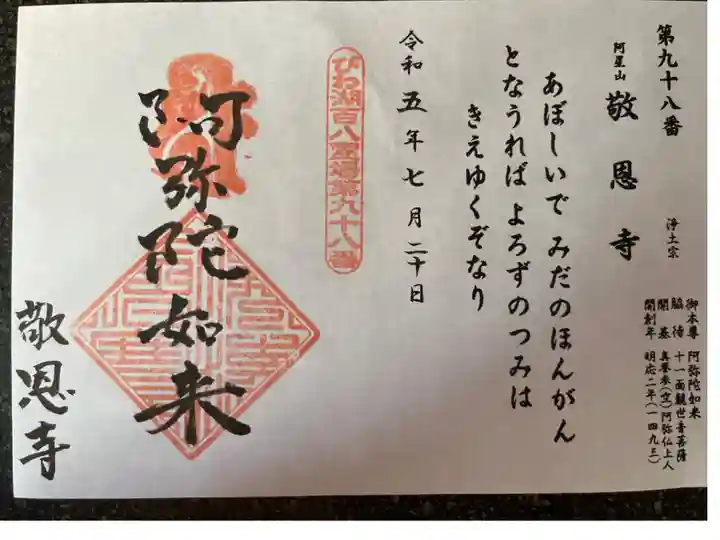 第九十八番
阿星山 敬恩寺 浄土宗
御本尊 阿弥陀如来
脇侍 十一面観世音菩薩
開基 真誉参(空)阿弥仏上人
開創年 明応二年(一四九三)
あぼしいで みだのほんがん
となうれば よろずのつみは
きえゆくぞなり
令和五年七月二十日
びわ湖百八霊場第九十八番
阿弥陀如来
敬恩寺